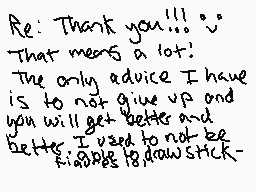 Re: Thank you!!! :)
That means a lot!
The only advice I have
is to not give up and
you will get better and
better. I used to not be
able to draw stick-
figures lol,